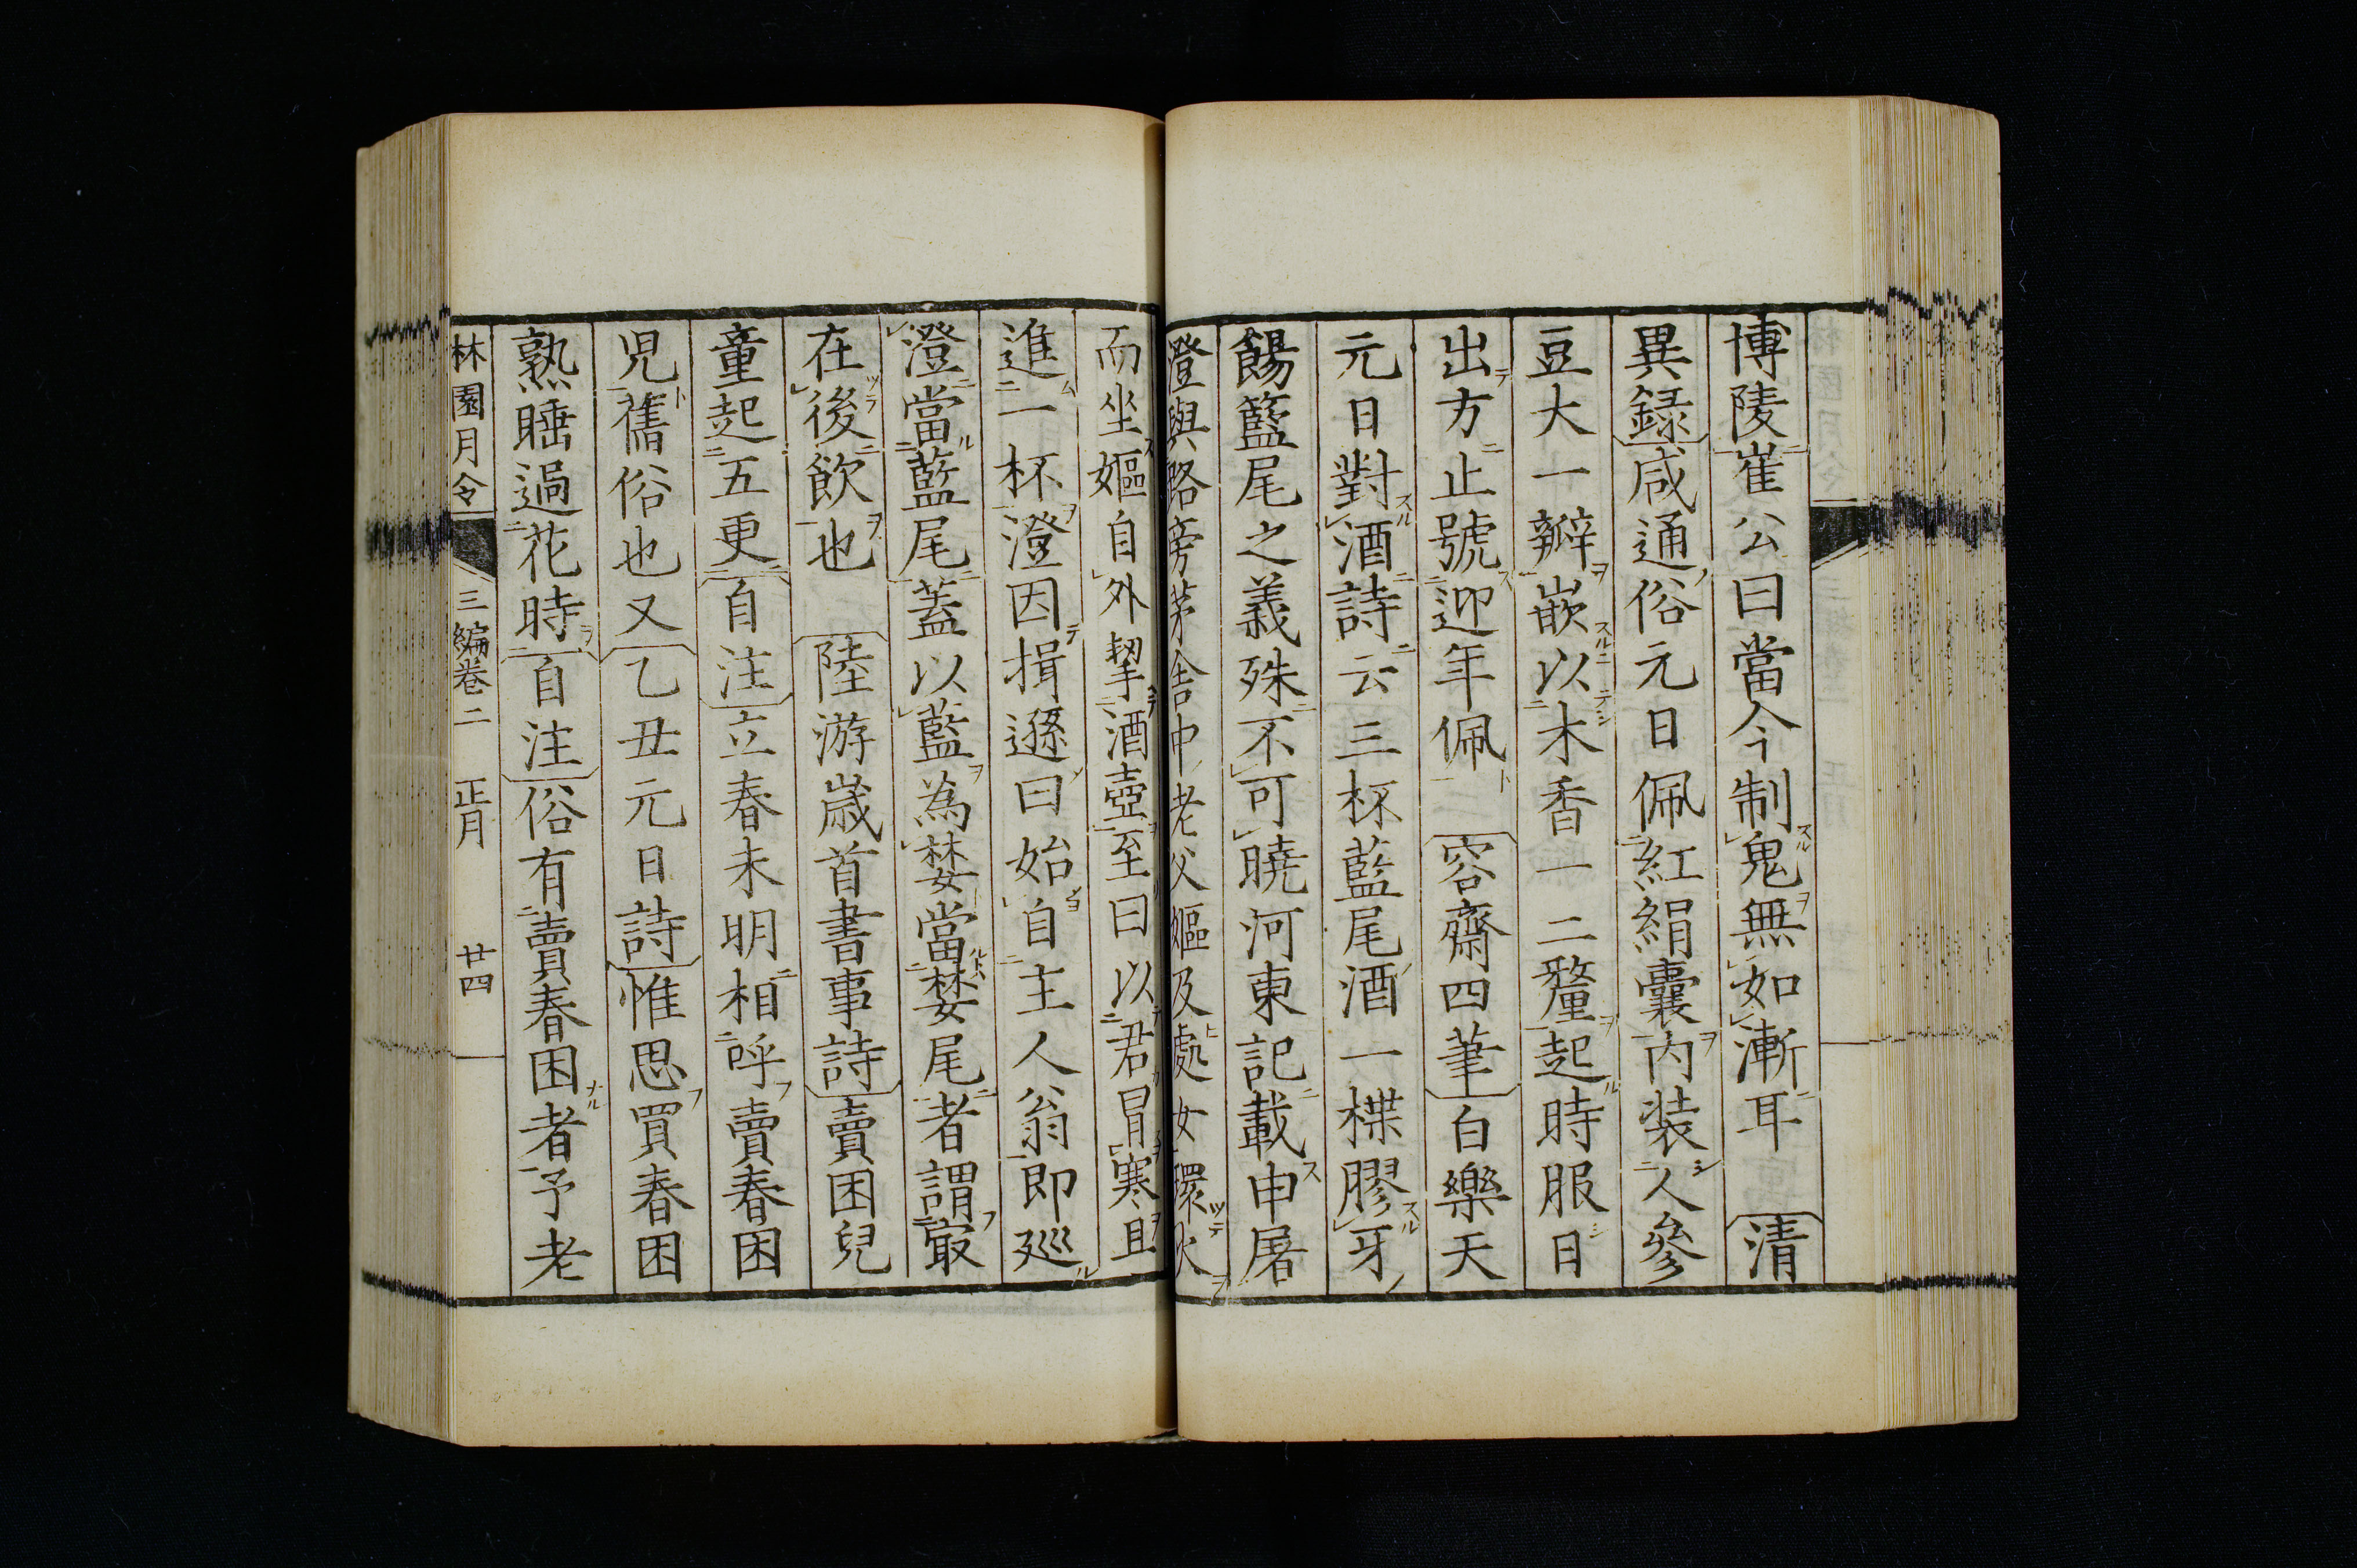 博陵崔公曰當今制鬼無如漸耳 清
異録咸通俗元日佩紅絹囊内装人參
豆大一瓣嵌以木香一二釐起時服日
出方止號迎年佩 容齋四筆白樂天
元日對酒詩云三杯藍尾酒一楪膠牙
餳籃尾之義殊不可曉河東記載申屠
澄與路旁茅舍中老父嫗及處女環火
而坐嫗自外挈酒壺至曰以君冒寒且
進一杯澄因揖遜曰始自主人翁即巡
澄當藍尾蓋以藍為婪當婪尾者謂㝡
在後飲也 陸游歳首書事詩賣困兒
童起五更自注立春未明相呼賣春困
児舊俗也又乙丑元日詩惟思買春困
熟睡過花時自注俗有賣春困者予老
林園月令 三編卷二 正月 廿四